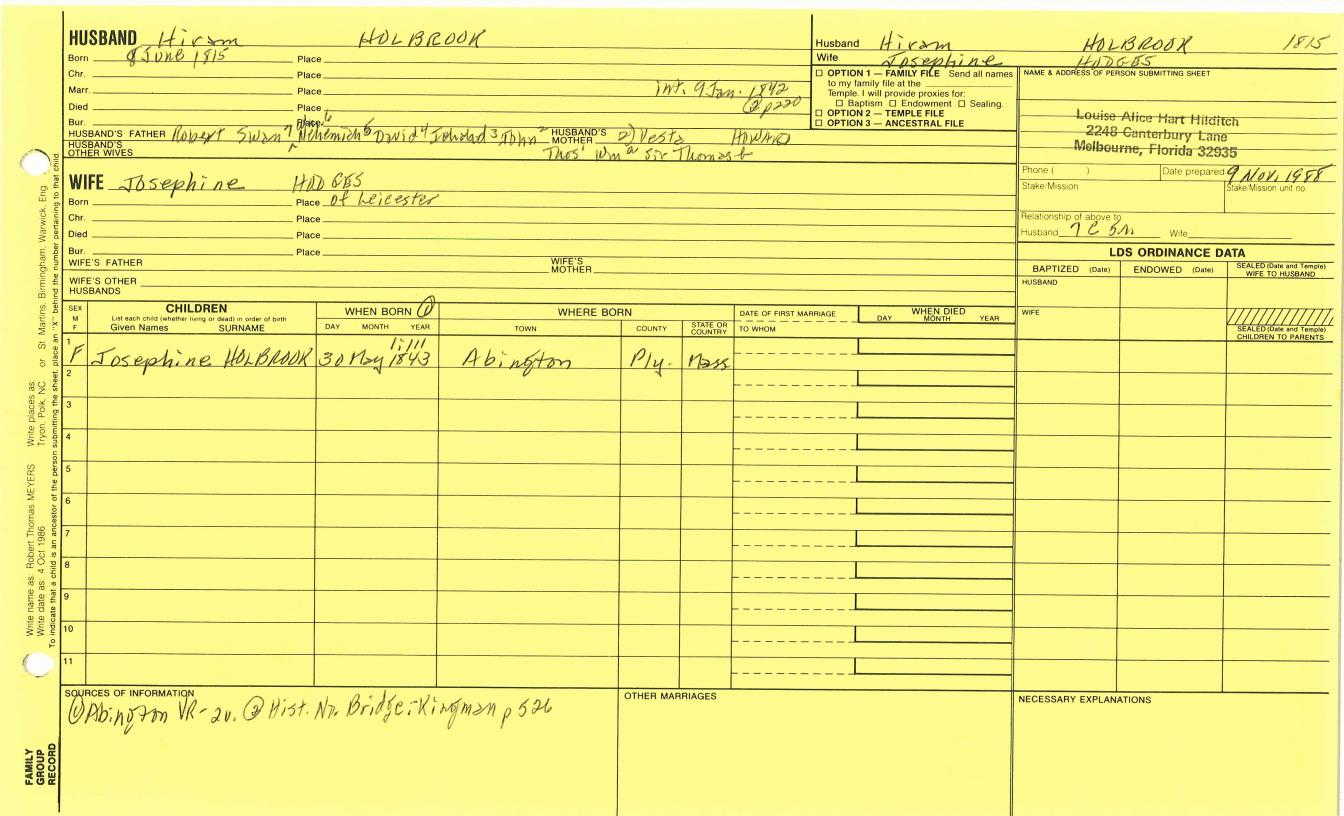 HUSBAND Hiram HOLBROOK
Born 8 June 1815 Place
Chr. Place
Marr. Place int. 9 Jan. 1842
Died Place ② p220
Bur. Place
HUSBAND'S FATHER Robert Swan 7 Nehemiah 6 David 4 Ichabod 3 John 2 HUSBAND'S MOTHER 2) Vesta HOWARD
HUSBAND'S OTHER WIVES Thos' Wm a Sir Thomas b
WIFE Josephine HODGES
Born Place of Leicester
Chr. Place
Died Place
Bur. Place
WIFE'S FATHER WIFE'S MOTHER
WIFE'S OTHER HUSBANDS
Husband Hiram HOLBROOK 1815
Wife Josephine HODGES
☐ OPTION 1 — FAMILY FILE Send all names
to my family file at the
Temple. I will provide proxies for:
☐ Baptism ☐ Endowment ☐ Sealing.
☐ OPTION 2 — TEMPLE FILE
☐ OPTION 3 — ANCESTRAL FILE
NAME & ADDRESS OF PERSON SUBMITTING SHEET
Louise Alice Hart Hilditch
2248 Canterbury Lane
Melbourne, Florida 32935
Phone ( ) Date prepared 9 Nov. 1988
Stake/Mission Stake/Mission unit no.
Relationship of above to
Husband 7 C 5R. Wife
LDS ORDINANCE DATA
BAPTIZED (Date) ENDOWED (Date) SEALED (Date and Temple) WIFE TO HUSBAND
HUSBAND
WIFE
SEALED (Date and Temple) CHILDREN TO PARENTS
SEX M F
CHILDREN
List each child (whether living or dead) in order of birth
Given Names SURNAME
WHEN BORN ①
DAY MONTH YEAR
WHERE BORN
TOWN COUNTY STATE OR COUNTRY
DATE OF FIRST MARRIAGE
TO WHOM
WHEN DIED
DAY MONTH YEAR
1:111
1 F Josephine HOLBROOK 30 May 1843 Abington Ply. Mass
2
3
4
5
6
7
8
9
10
11
SOURCES OF INFORMATION
① Abington VR- 2v. ② Hist. No. Bridge:-Kingman p 526
OTHER MARRIAGES
NECESSARY EXPLANATIONS
Write name as: Robert Thomas MEYERS Write places as: Tryon, Polk, NC or St. Martins, Birmingham, Warwick, Eng.
Write date as: 4 Oct 1986
To indicate that a child is an ancestor of the person submitting the sheet, place an "X" behind the number pertaining to that child
FAMILY
GROUP
RECORD